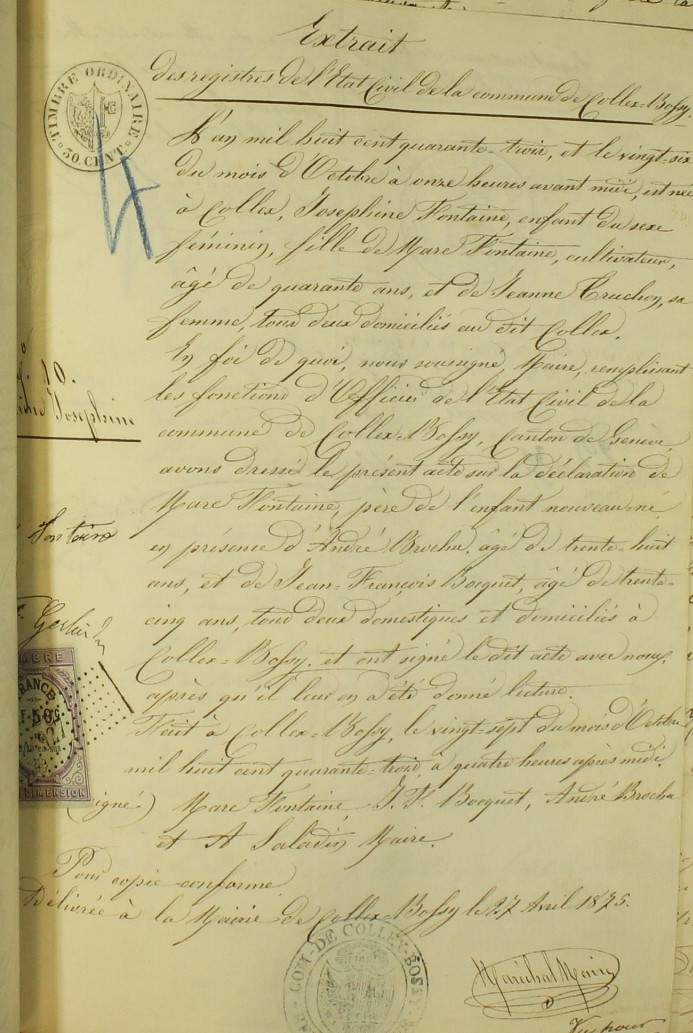 Extrait
des registres de l'Etat Civil de la commune de Collex-Bossy.
TIMBRE ORDINAIRE
50 CENT.
4
L'an mil huit cent quarante-trois, et le vingt-six
du mois d'Octobre à onze heures avant midi, est née
à Collex, Josephine Fontaine, enfant du sexe
féminin, fille de Marc Fontaine, cultivateur,
âgé de quarante ans, et de Jeanne Truchon, sa
femme, tous deux domiciliés au dit Collex.
En foi de quoi, nous soussigné, Maire, remplissant
les fonctions d'Officier de l'Etat Civil de la
commune de Collex-Bossy, Canton de Genève,
avons dressé le présent acte sur la déclaration de
Marc Fontaine, père de l'enfant nouveau-né
en présence d'André Brochu, âgé de trente-huit
ans, et de Jean-François Bocquet, âgé de trente-
cinq ans, tous deux domestiques et domiciliés à
Collex-Bossy, et ont signé le dit acte avec nous,
après qu'il leur en a été donné lecture.
Fait à Collex-Bossy, le vingt-sept du mois d'Octobre
mil huit cent quarante-trois, à quatre heures après midi.
(signé) Marc Fontaine J. F. Bocquet, André Brochu
et A Saladin Maire.
Pour copie conforme
Délivrée à la Mairie de Collex-Bossy le 27 Avril 1875.
COM. DE COLLEX-BOSS
Maréchal Maire
Vu pour
10.
Josephine
Fontaine
FRANCE
50c
DIMENSION